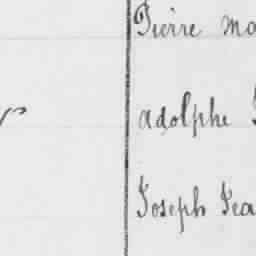 Pierre Ma
adolphe
Joseph Jea